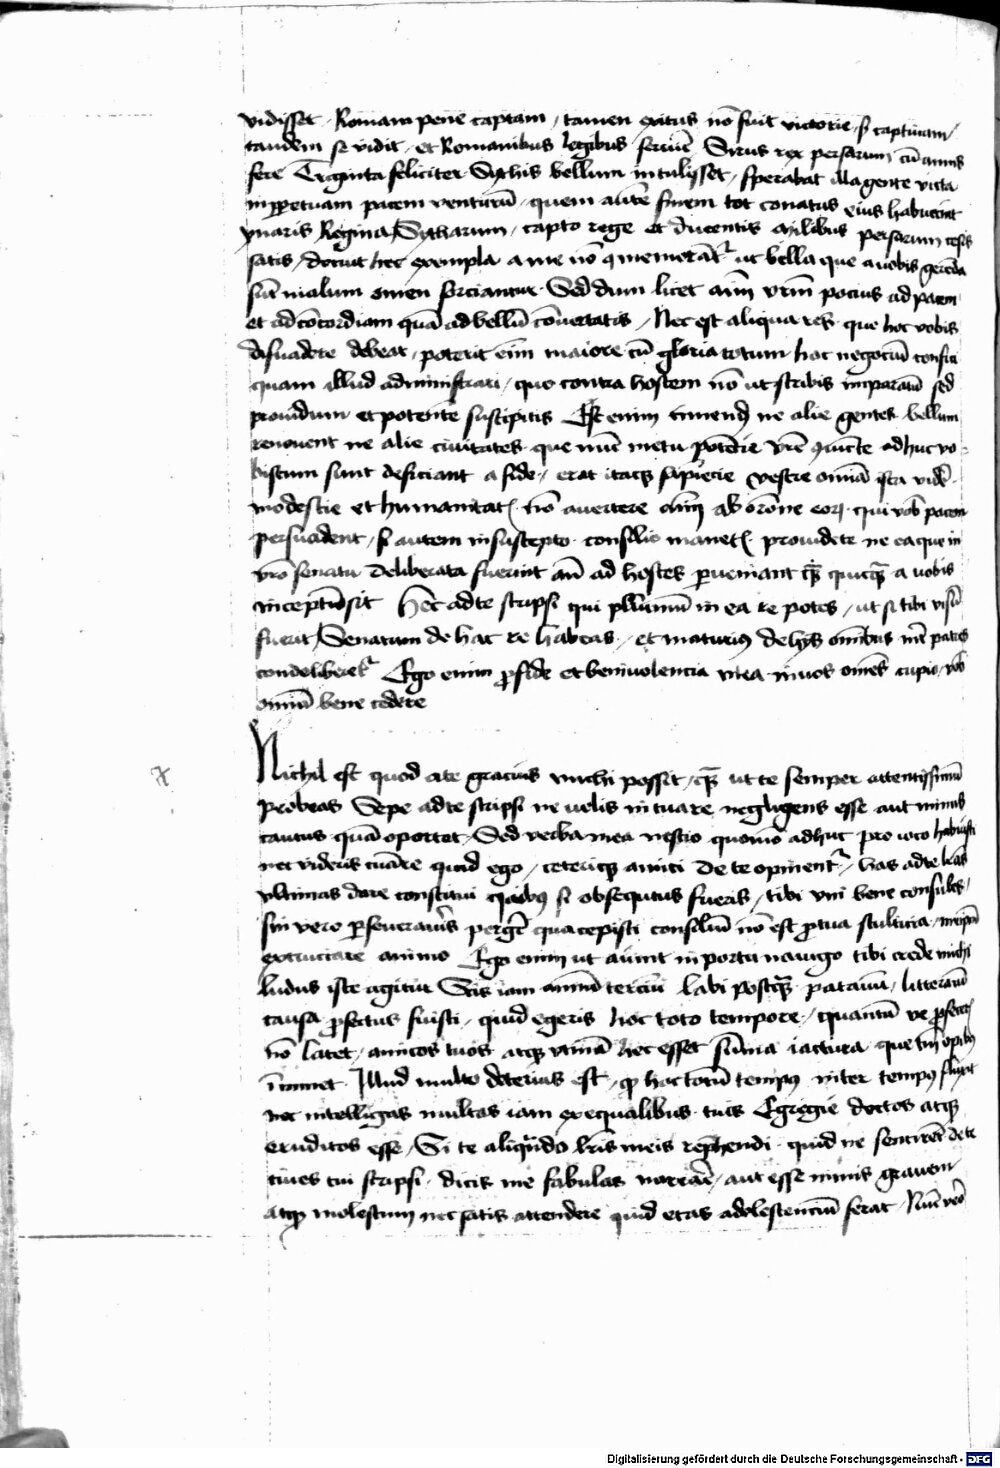 vidisset Romam pene captam / tamen exitus nō fuit victorie / s captiuam /
tandem se vidit / et Romanibus legibus seruiē Sirus rex persarum cū annis
fere Triginta feliciter Sithis bellum intulisset / sperabat illa gente victa
in ppetuam pacem venturū / quem autē finem tot conatus eius habuerint
ynaris Regina Sytharum / capto rege et ducentis milibus persarum cesis
satis / docuit hec exempla a me nō ꝯmemorāt᷑ ut bella que a uobis gerēda
sūt malum omen sorciantur Sed dum licet aīm vrm̄ pocius ad pacem
et ad cōcordiam quā ad bellū cōuertatis / Nec est aliqua res que hoc vobis
disuadere debeat / poterit eīm maiore cū gloria totum hoc negociū confici
quam illud administrari / quo contra hostem nō ut scribis imparatū sed
prouidum et potentē suscipitis Est enim timend ne alie gentes bellum
renouent ne alie ciuitates que nūc metu potēcie vrē ꝯiuncte adhuc vo
biscum sunt deficiant a fide / erat itaqꝫ sapiēcie vestre omīa ista vidē
modestie et humanitat nō auertere aīm ab orōne eorꝫ qui vob pacem
persuadent / si autem in suscepto consilio manet prouidete ne ea que in
vro senatu deliberata fuerint an̄ ad hostes perueniant qꝫ quicqꝫ a uobis
inceptū sit Hec ad te scripsi qui plurimū in ea re potes / ut si tibi visū
fuerit / Senatum de hac re habeas / et maturius de hys omibus int̄ patres
condeliberet᷑ Ego enim ꝓ fide et beniuolencia mea in uos omēs cupio / vob
omīa bene cedere
Nichil est quod a te gracius michi possit / qꝫ ut te semper attentissimū
prebeas Sepe ad te scripsi ne uelis in tua re negligens esse aut minus
cautus quā oportet / Sed verba mea nescio quomō adhuc pro ioco habuisti
nec videris curare quid ego / ceteriqꝫ amici de te opinent᷑ / has ad te lras
vltimas dare constitui quibus si obsequtus fueris / tibi vni bene consules /
sin vero ꝑseueraueris pergere qua cepisti consiliū nō est ꝓ tua stulticia / meipm
excruciare animo Ego enim ut aiunt in portu nauigo tibi crede michi
ludus iste agitur Scis iam annū terciū labi postqꝫ patauiū / litterarū
causa ꝓfectus fuisti / quid egeris hoc toto tempore / quantū ve ꝓfeceris
nō latet / amicos tuos atqꝫ vtinā hec esset sūma iactura que tm̄ opibus
īminet Illud multo deterius est / qꝫ hoc totū tempus inter tempus fluxit
nec intelligas multos iam ex equalibus tuis Egregie doctos atqꝫ
eruditos esse / Si te aliqn̄do lris meis rephendi quid ne sentirēt de te
ciues tui scripsi / dicis me fabulas narrare / aut esse nimis grauem
atqꝫ molestum nec satis attendere quid etas adolescenciū ferat / Nūc vero
Digitalisierung gefördert durch die Deutsche Forschungsgemeinschaft - DFG